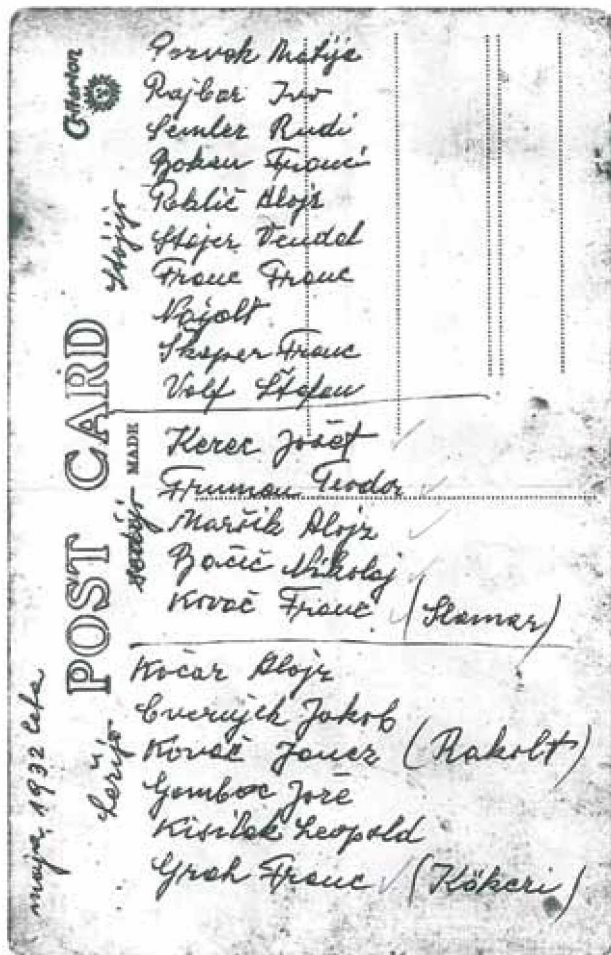 Criterion
POST CARD
MADE
maja, 1932 leta
Stojijo
Matija
Rajbar Ivo
Semler Rudi
Franci
Alojz
Štejer Vendel
Franc Franc
Skaper Franc
Volf Štefan
sedijo
Kerec Jožef
Fruman Teodor
Maršik Alojz
Bačič Nikolaj
Kovač Franc (Slamar)
Ležijo
Kočar Alojz
Cvernjek Jakob
Kovač Janez (Rakolt)
Gomboc Jože
Kisilak Leopold
Grah Franc (Kökeri)